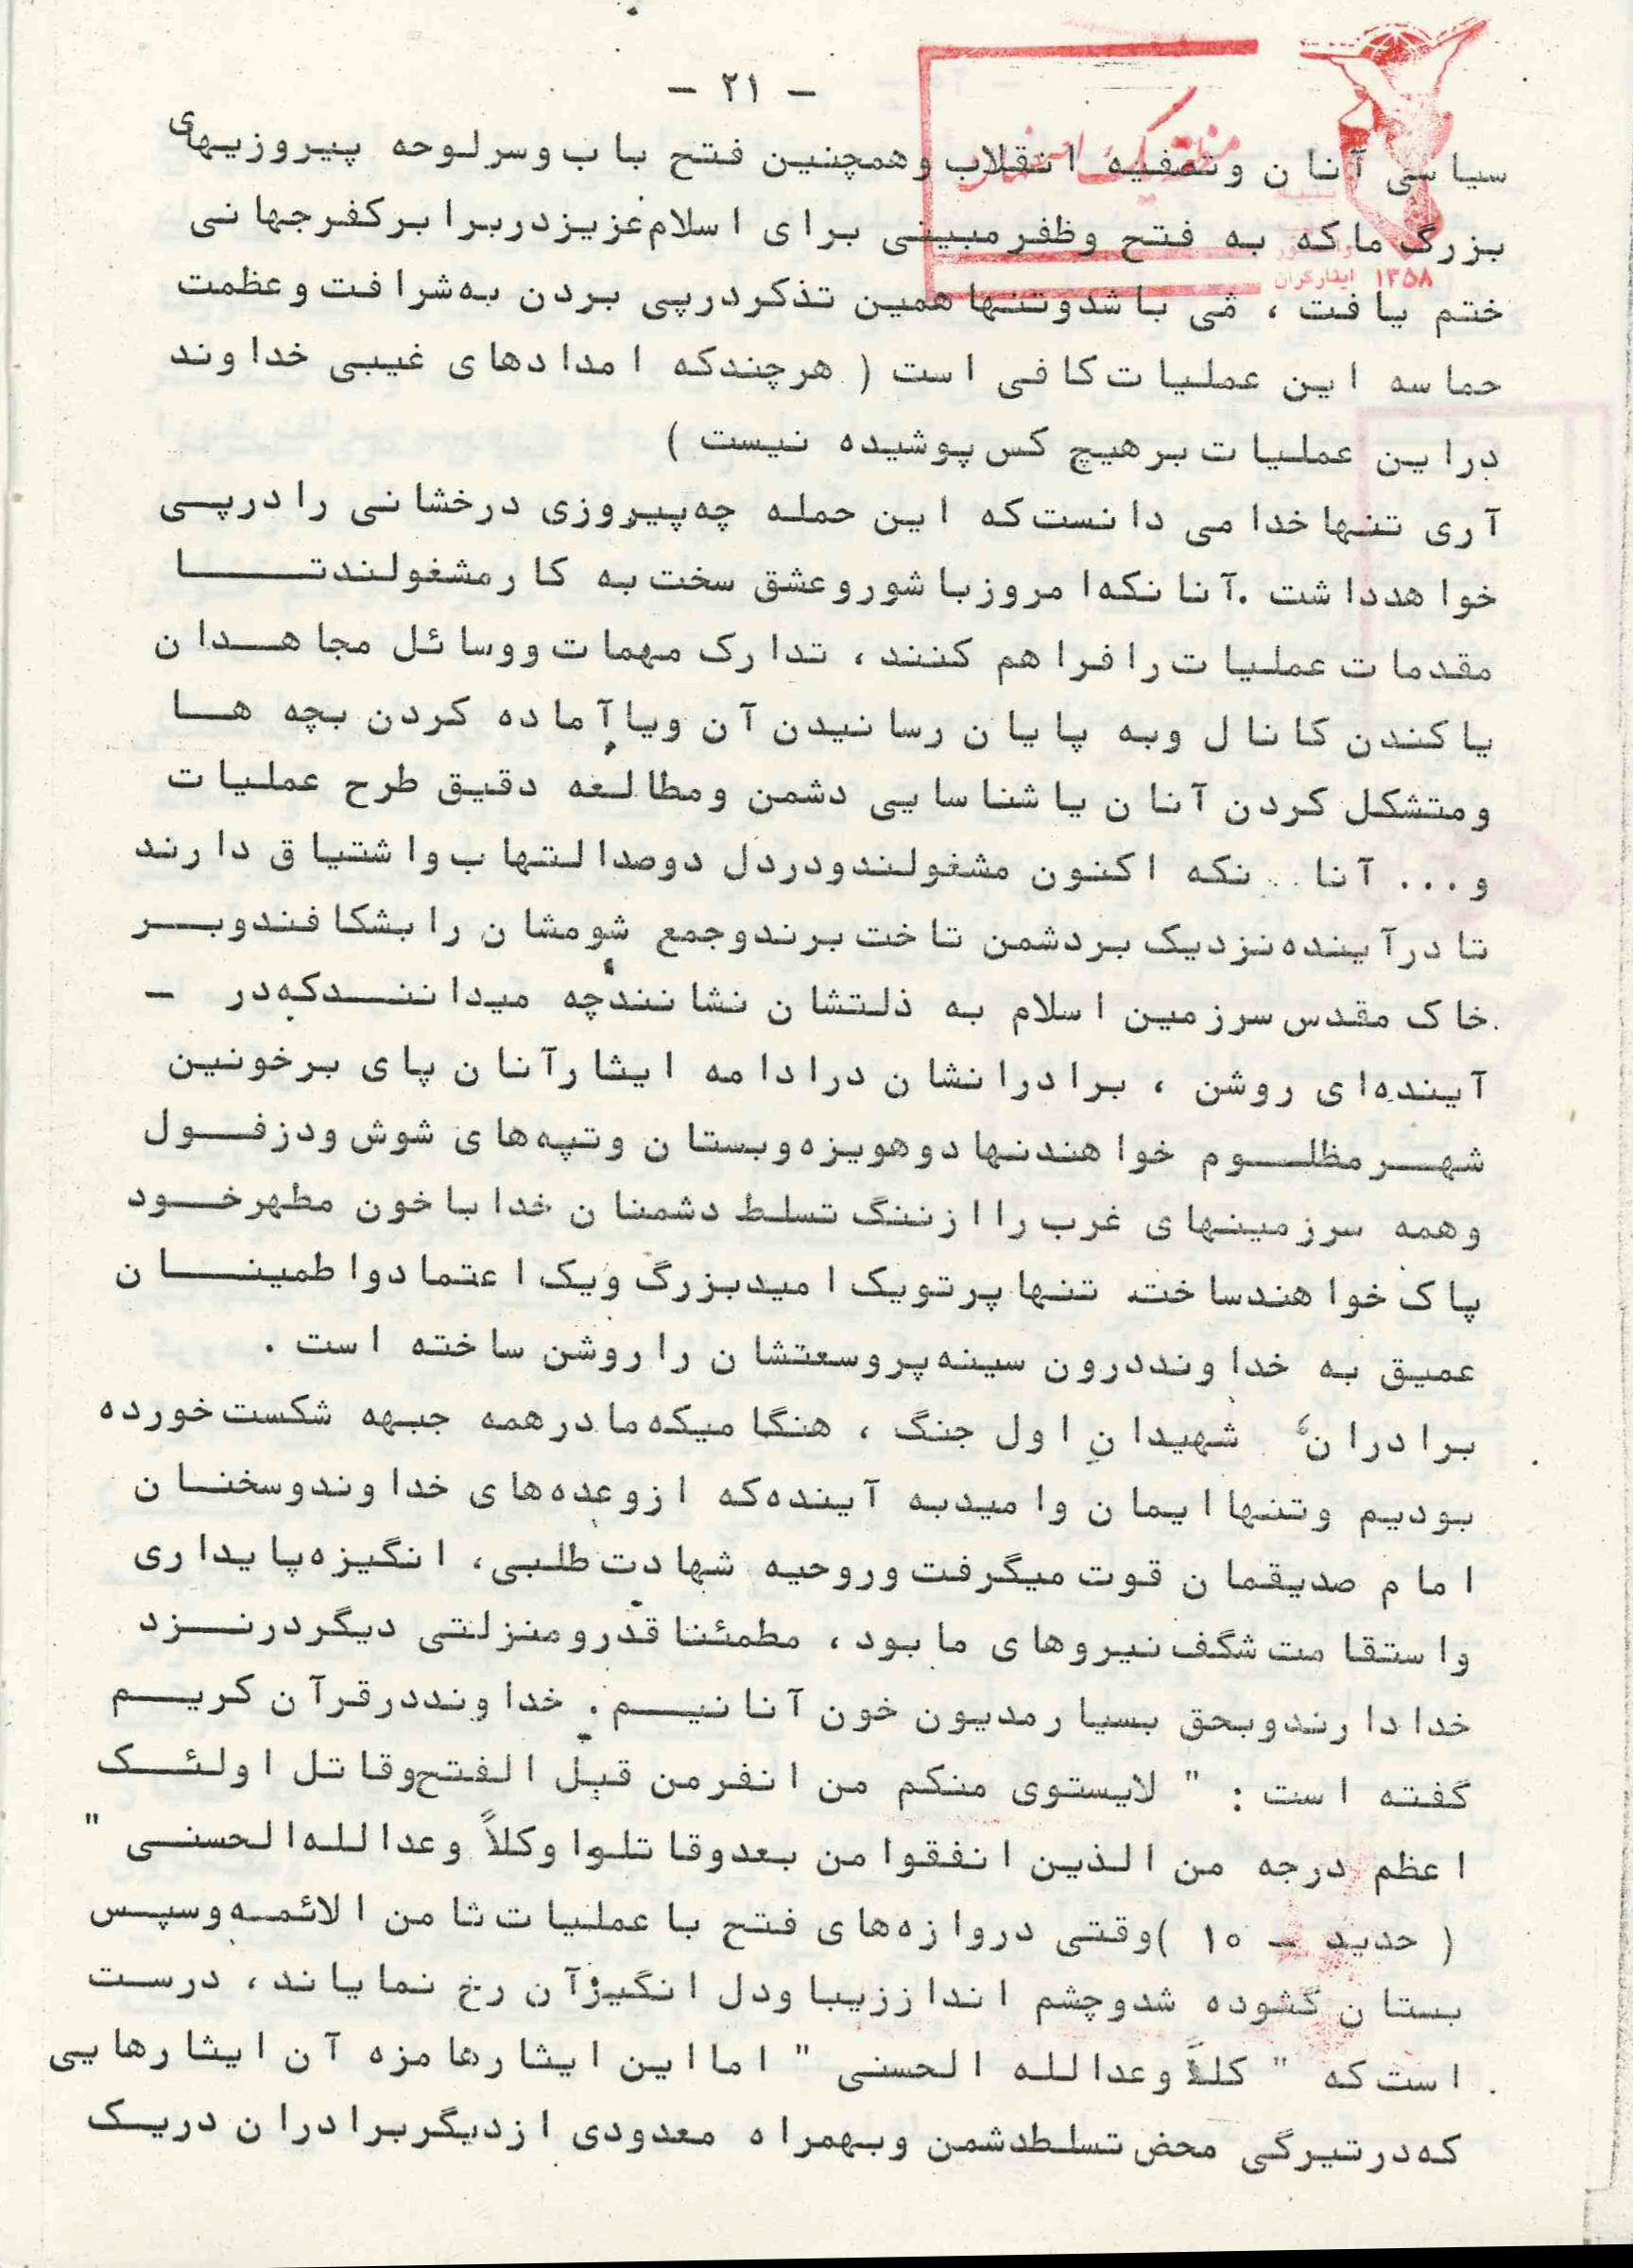 - ۲۱ -
سیاسی آنان وتصفیه انقلاب وهمچنین فتح باب وسرلوحه پیروزیهای
بزرگ ماکه به فتح وظفرمبینی برای اسلام عزیزدربرابرکفرجهانی
۱۳۵۸ ایثارگران
ختم یافت ، می باشدوتنها همین تذکردرپی بردن به شرافت وعظمت
حماسه این عملیات کافی است ( هرچندکه امدادهای غیبی خداوند
دراین عملیات برهیچ کس پوشیده نیست )
آری تنها خدا می دانست که این حمله چه پیروزی درخشانی رادرپی
خواهدداشت .آنانکه امروزباشوروعشق سخت به کارمشغولندتا
مقدمات عملیات رافراهم کنند، تدارک مهمات ووسائل مجاهدان
یاکندن کانال وبه پایان رسانیدن آن ویاآماده کردن بچه ها
ومتشکل کردن آنان یاشناسایی دشمن ومطالعه دقیق طرح عملیات
و... آنا نکه اکنون مشغولندودردل دوصدالتهاب واشتیاق دارند
تا درآینده نزدیک بردشمن تاخت برندوجمع شومشان رابشکافندوبر
خاک مقدس سرزمین اسلام به ذلتشان نشانندچه میدانندکه در -
آینده ای روشن ، برادرانشان درادامه ایثارآنان پای برخونین
شهرمظلوم خواهندنهادوهویزه وبستان وتپه های شوش ودزفول
وهمه سرزمینهای غرب راازننگ تسلط دشمنان خداباخون مطهرخود
پاک خواهندساخت تنها پرتویک امیدبزرگ ویک اعتمادواطمینان
عمیق به خداونددرون سینه پروسعتشان راروشن ساخته است .
برادران، شهیدانِ اول جنگ ، هنگامیکه مادرهمه جبهه شکست خورده
بودیم وتنهاایمان وامیدبه آینده که ازوعده های خداوندوسخنان
امام صدیقمان قوت میگرفت وروحیه شهادت طلبی، انگیزه پایداری
واستقامت شگف نیروهای مابود، مطمئنا قدرومنزلتی دیگردرنزد
خدادارندوبحق بسیارمدیون خون آنانیم . خداونددرقرآن کریم
گفته است : " لایستوی منکم من انفرمن قبل الفتح وقاتل اولئک
اعظم درجه من الذین انفقوامن بعدوقاتلوا وکلاً وعدالله الحسنی "
( حدید - ۱۰ )وقتی دروازه های فتح باعملیات ثامن الائمه وسپس
بستان گشوده شدوچشم انداززیباودل انگیزآن رخ نمایاند، درست
است که " کلاً وعدالله الحسنی " امااین ایثارهامزه آن ایثارهایی
که درتیرگی محض تسلط دشمن وبهمراه معدودی ازدیگربرادران دریک